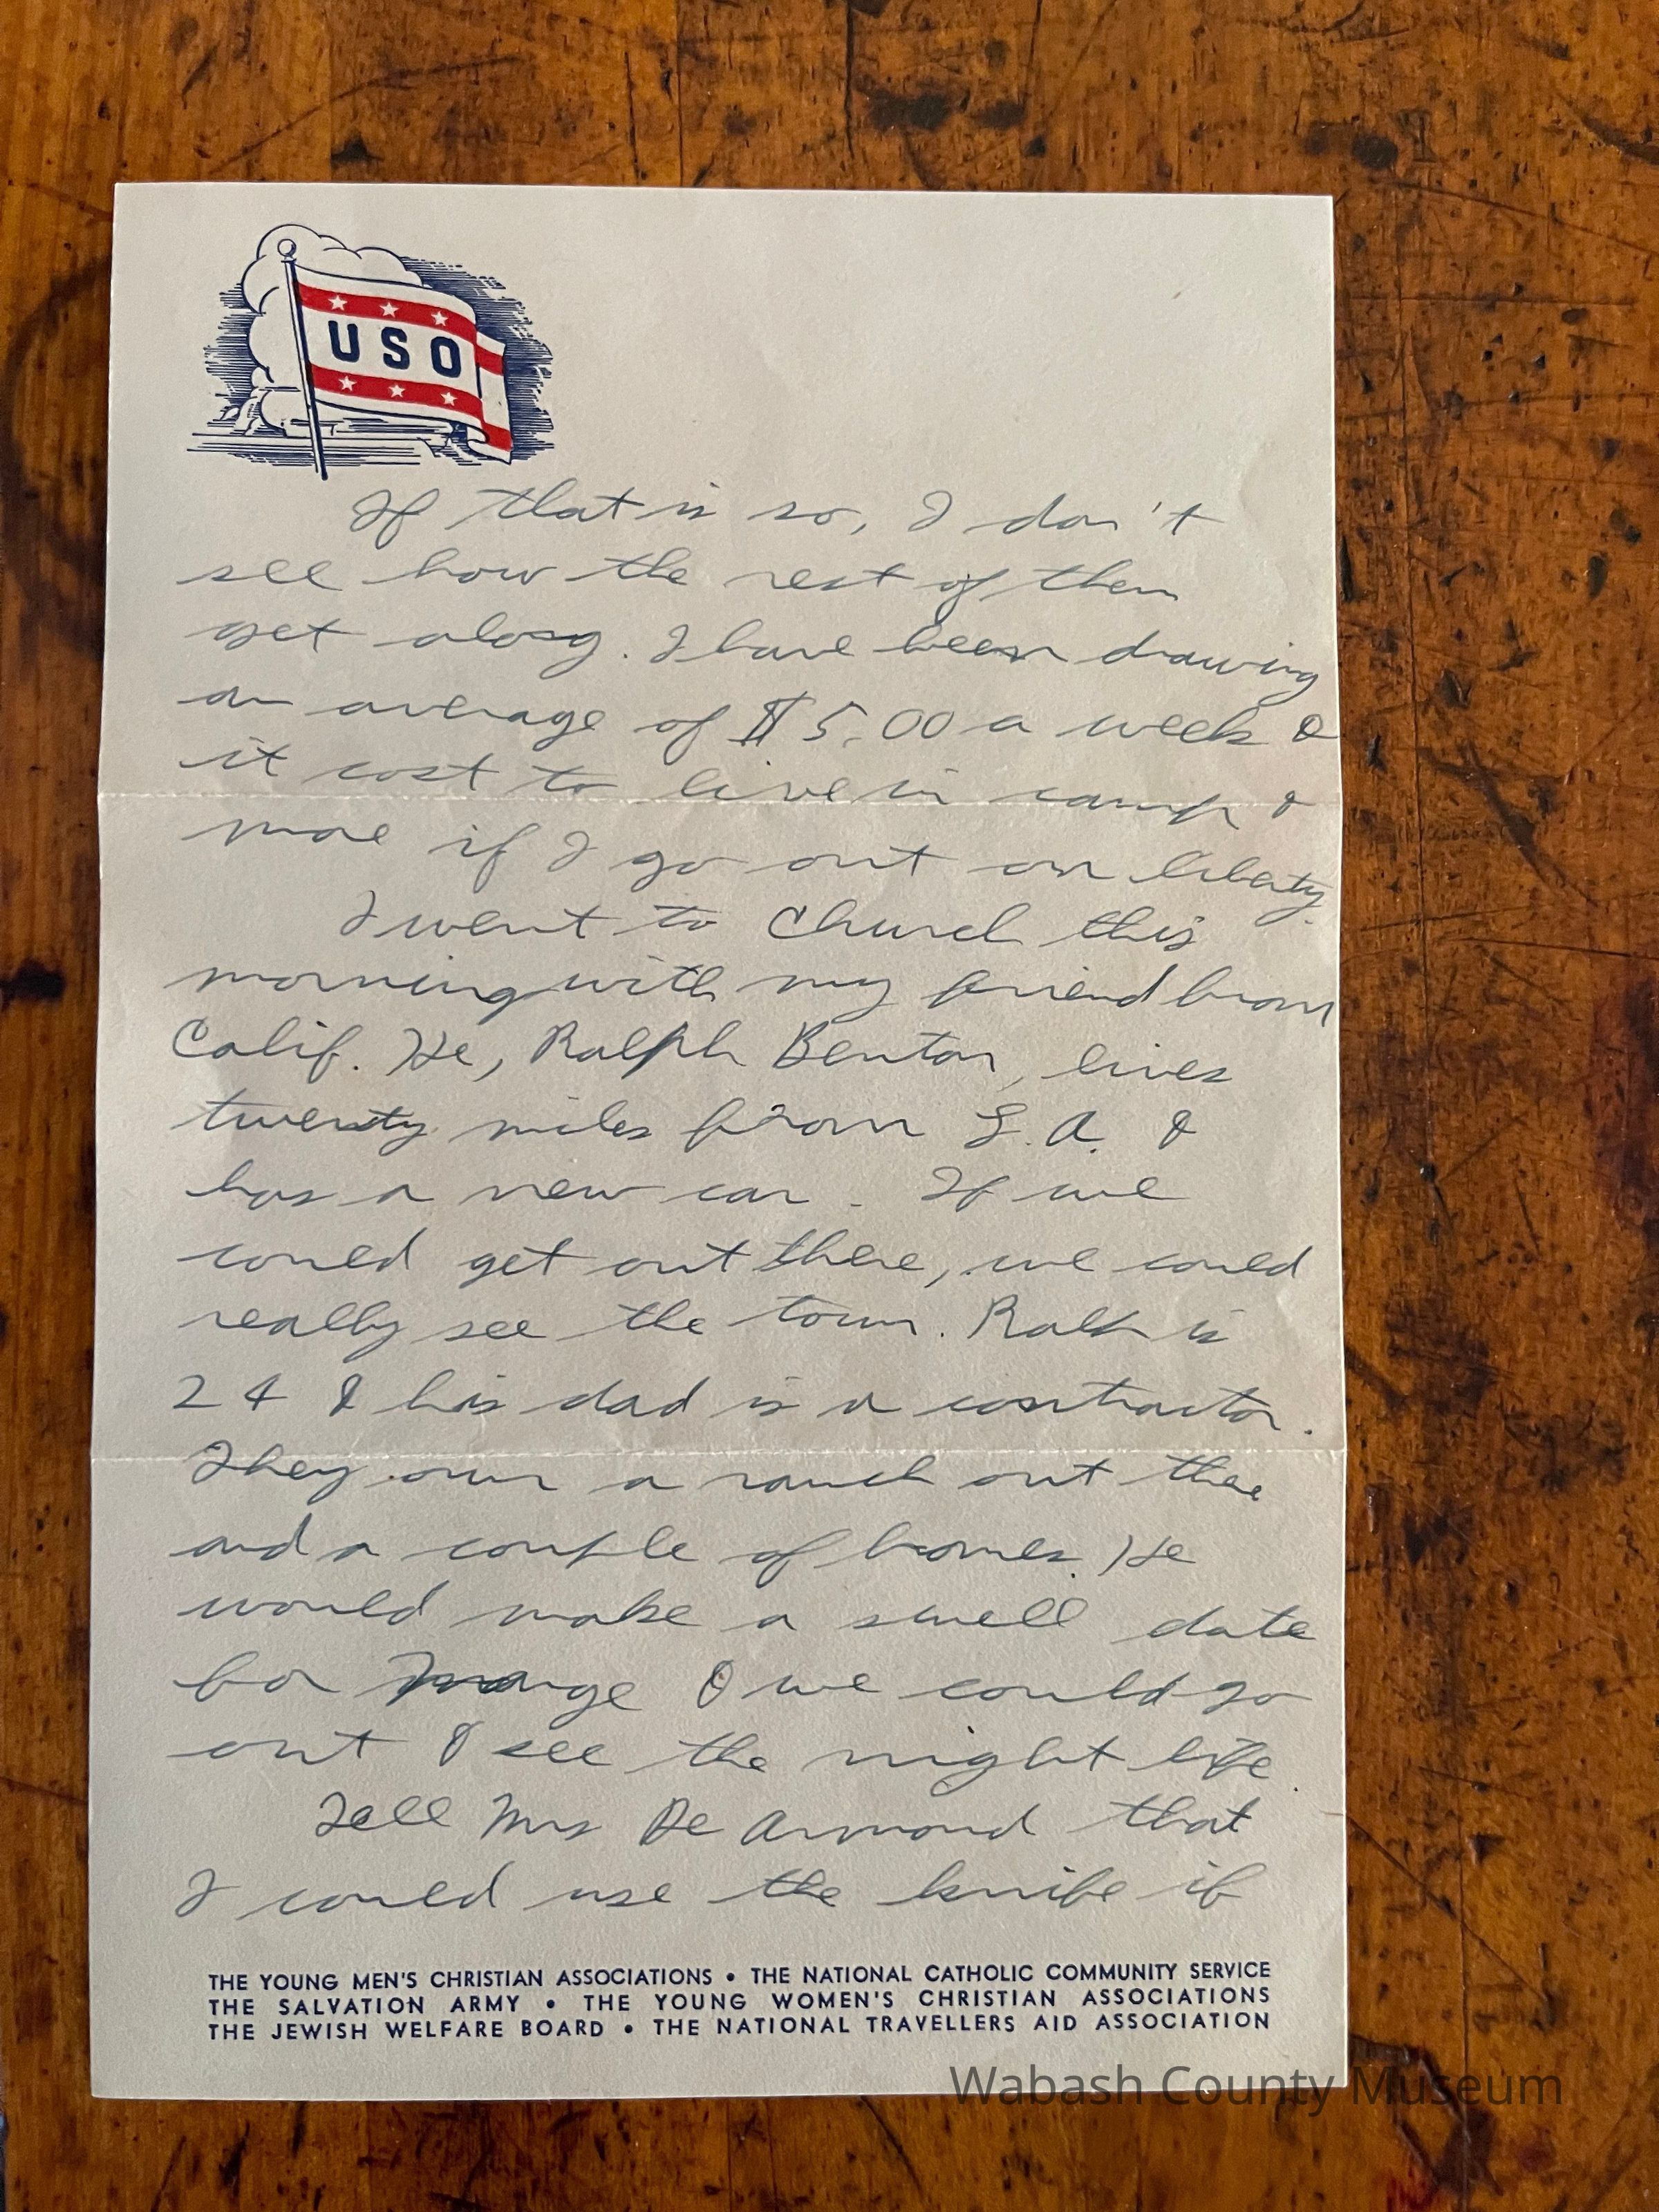 USO
If that is so, I don't
see how the rest of them
get along. I have been drawing
an average of $5.00 a week &
it cost to live in camp &
more if I go out on liberty.
I went to Church this
morning with my friend from
Calif. He, Ralph Benton, lives
twenty miles from L.A. &
has a new car. If we
could get out there, we could
really see the town. Ralh is
24 & his dad is a contractor.
They own a ranch out there
and a couple of homes. He
would make a swell date
for & we could go
out & see the night life.
Tell Mrs De Armond that
I could use the knife if
THE YOUNG MEN'S CHRISTIAN ASSOCIATIONS • THE NATIONAL CATHOLIC COMMUNITY SERVICE
THE SALVATION ARMY • THE YOUNG WOMEN'S CHRISTIAN ASSOCIATIONS
THE JEWISH WELFARE BOARD • THE NATIONAL TRAVELLERS AID ASSOCIATION
Wabash County Museum